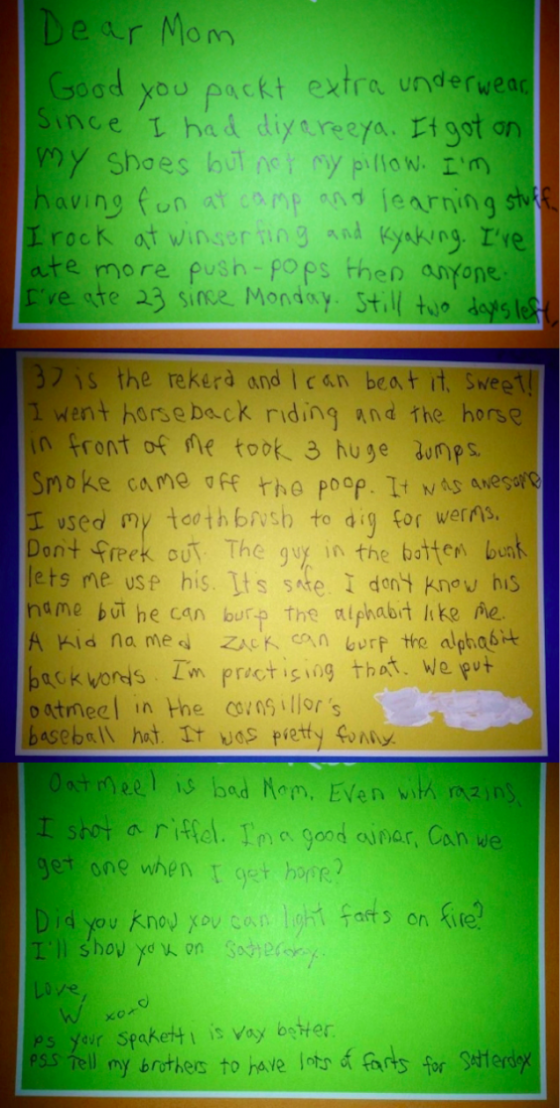 Dear Mom
Good you packt extra underwear
since I had diyareeya. It got on
my shoes but not my pillow. I'm
having fun at camp and learning stuff.
I rock at winserfing and kyaking. I've
ate more push-pops then anyone.
I've ate 23 since Monday. Still two days left,
37 is the rekerd and I can beat it. Sweet!
I went horseback riding and the horse
in front of me took 3 huge dumps.
Smoke came off the poop. It was awesome
I used my toothbrush to dig for werms.
Don't freek out. The guy in the bottem bunk
lets me use his. It's safe. I don't know his
name but he can burp the alphabit like me.
A kid named Zack can burp the alphabit
backwords. I'm practising that. We put
oatmeel in the counsillor's
baseball hat. It was pretty funny.
Oatmeel is bad Mom. Even with razins.
I shot a riffel. I'm a good aimer. Can we
get one when I get home?
Did you know you can light farts on fire?
I'll show you on Satterday.
Love,
W xoxo
ps your spaketti is way better.
PSS Tell my brothers to have lots of farts for Satterday